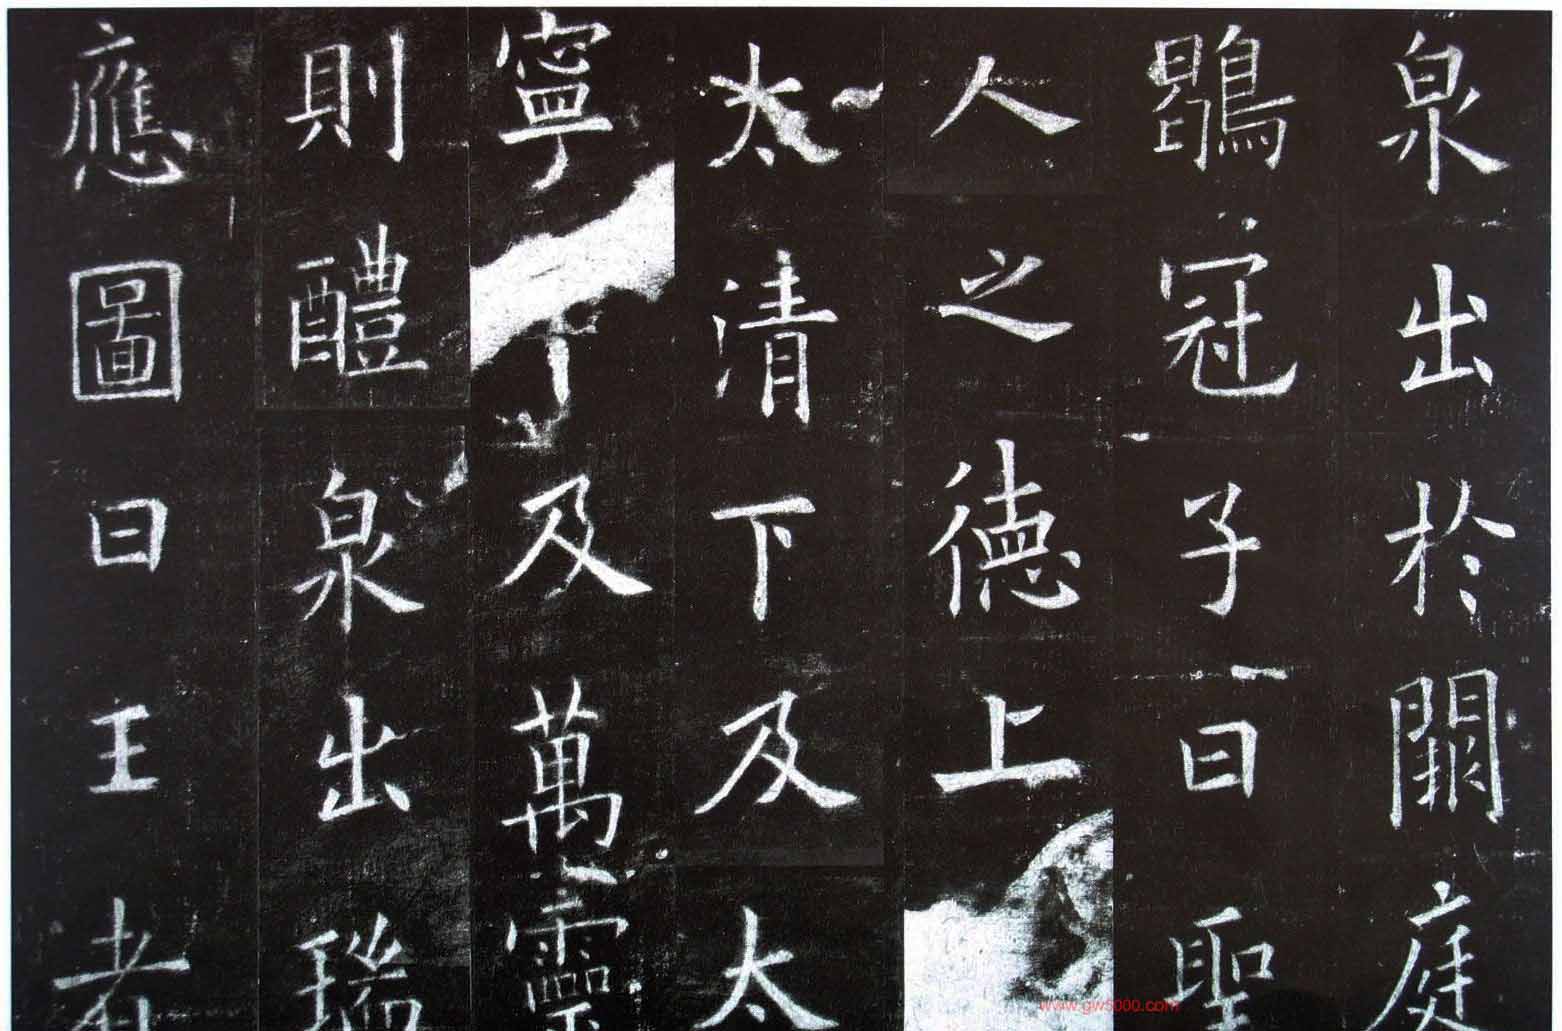 泉出於闕庭
鶡冠子曰聖
人之德上
太清下及太
寧下及萬靈
則醴泉出瑞
應圖曰王者
www.gw5000.com